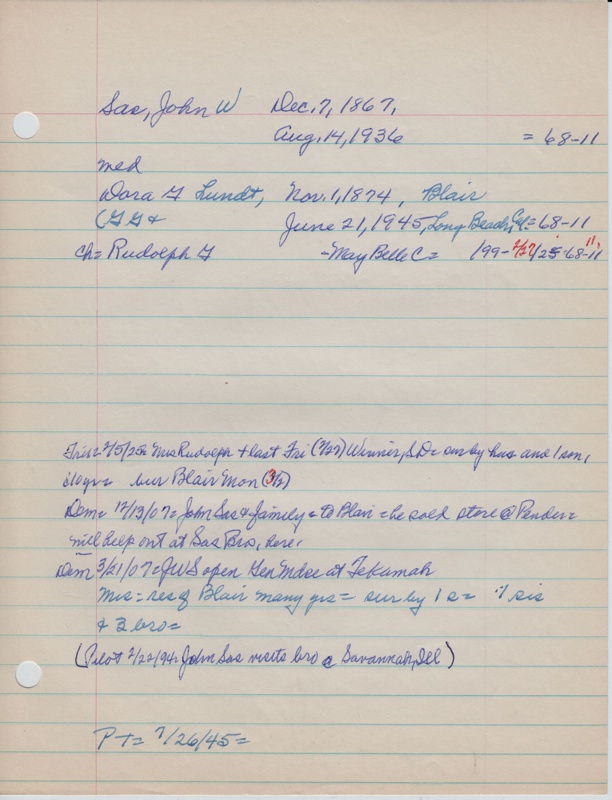 Sas, John W Dec. 7, 1867,
Aug. 14, 1936 = 68-11
med
Dora G Lundt, Nov. 1, 1874, Blair
(GG& June 21, 1945, Long Beach, Cal = 68-11
ch= Rudolph G -May Belle C= 199- 2/27/25 68-11
= Mrs Rudolph + last Fri (2/27) Winner, SD= sur by hus and 1 son,
bur Blair Mon (3/2)
Dem= 12/13/07= John Sas & family= to Blair= he sold store @ Pender=
will help out at Sas Bros, here.
Dem 3/21/07= JWS open Gen Mdse at Tekamah
Mrs= res of Blair many yrs= sur by 1 s= 1 sis
& 3 bro=
(Pilot 2/22/94= John Sas visits bro @ Savannah, Ill)
PT= 7/26/45=